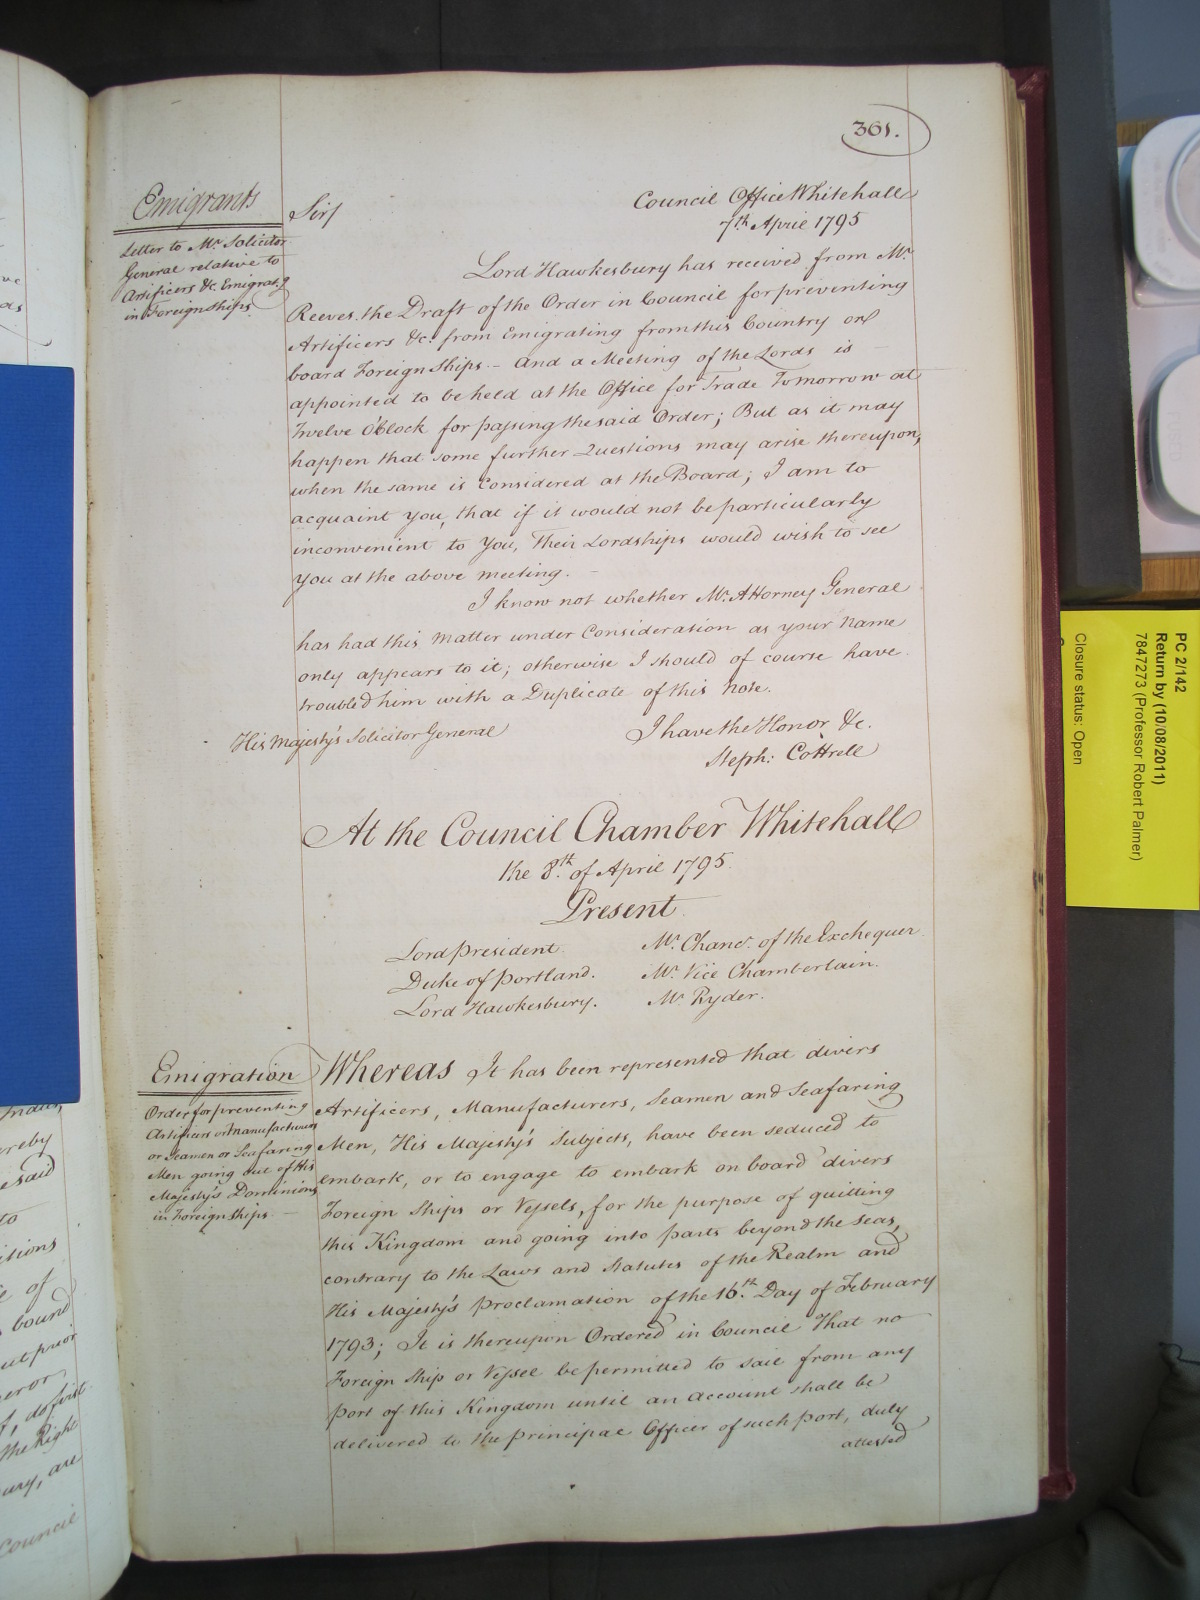 361.
Emigrants
Letter to Mr. Solicitor
General relative to
Artificers &c. Emigratg
in Foreign Ships
Sir/
Council Office Whitehall
7th April 1795
Lord Hawkesbury has received from Mr.
Reeves, the Draft of the Order in Council for preventing
Artificers &c. from Emigrating from this Country on
board Foreign Ships. – And a Meeting of the Lords is
appointed to be held at the Office for Trade Tomorrow at
Twelve O'Clock for passing the said Order; But as it may
happen that some further Questions may arise thereupon,
when the same is Considered at the Board; I am to
acquaint you, that if it would not be particularly
inconvenient to You, Their Lordships would wish to see
you at the above meeting. –
I know not whether Mr. Attorney General
has had this Matter under Consideration as your Name
only appears to it; otherwise I should of course have
troubled him with a Duplicate of this Note.
I have the Honor &c.
His Majesty's Solicitor General
Steph: Cottrell
At the Council Chamber Whitehall
the 8th of April 1795.
Present
Lord President
Duke of Portland.
Lord Hawkesbury.
Mr. Chancr. of the Exchequer.
Mr. Vice Chamberlain.
Mr. Ryder.
Emigration
Order for preventing
Artificers or Manufacturers
or Seamen or Seafaring
Men going out of His
Majesty's Dominions
in Foreign Ships. –
Whereas It has been represented that divers
Artificers, Manufacturers, Seamen and Seafaring
Men, His Majesty's Subjects, have been seduced to
embark, or to engage to embark on board divers
Foreign Ships or Vessels, for the purpose of quitting
this Kingdom and going into parts beyond the Seas,
contrary to the Laws and Statutes of the Realm and
His Majesty's Proclamation of the 16th Day of February
1793; It is thereupon Ordered in Council That no
Foreign Ship or Vessel be permitted to sail from any
port of this Kingdom until an Account shall be
delivered to the Principal Officer of such port, duly
attested
ereby
said
to
itions
of
bound
the Right
are
Council
PC 2/142
Return by (10/08/2011)
7847273 (Professor Robert Palmer)
Closure status: Open